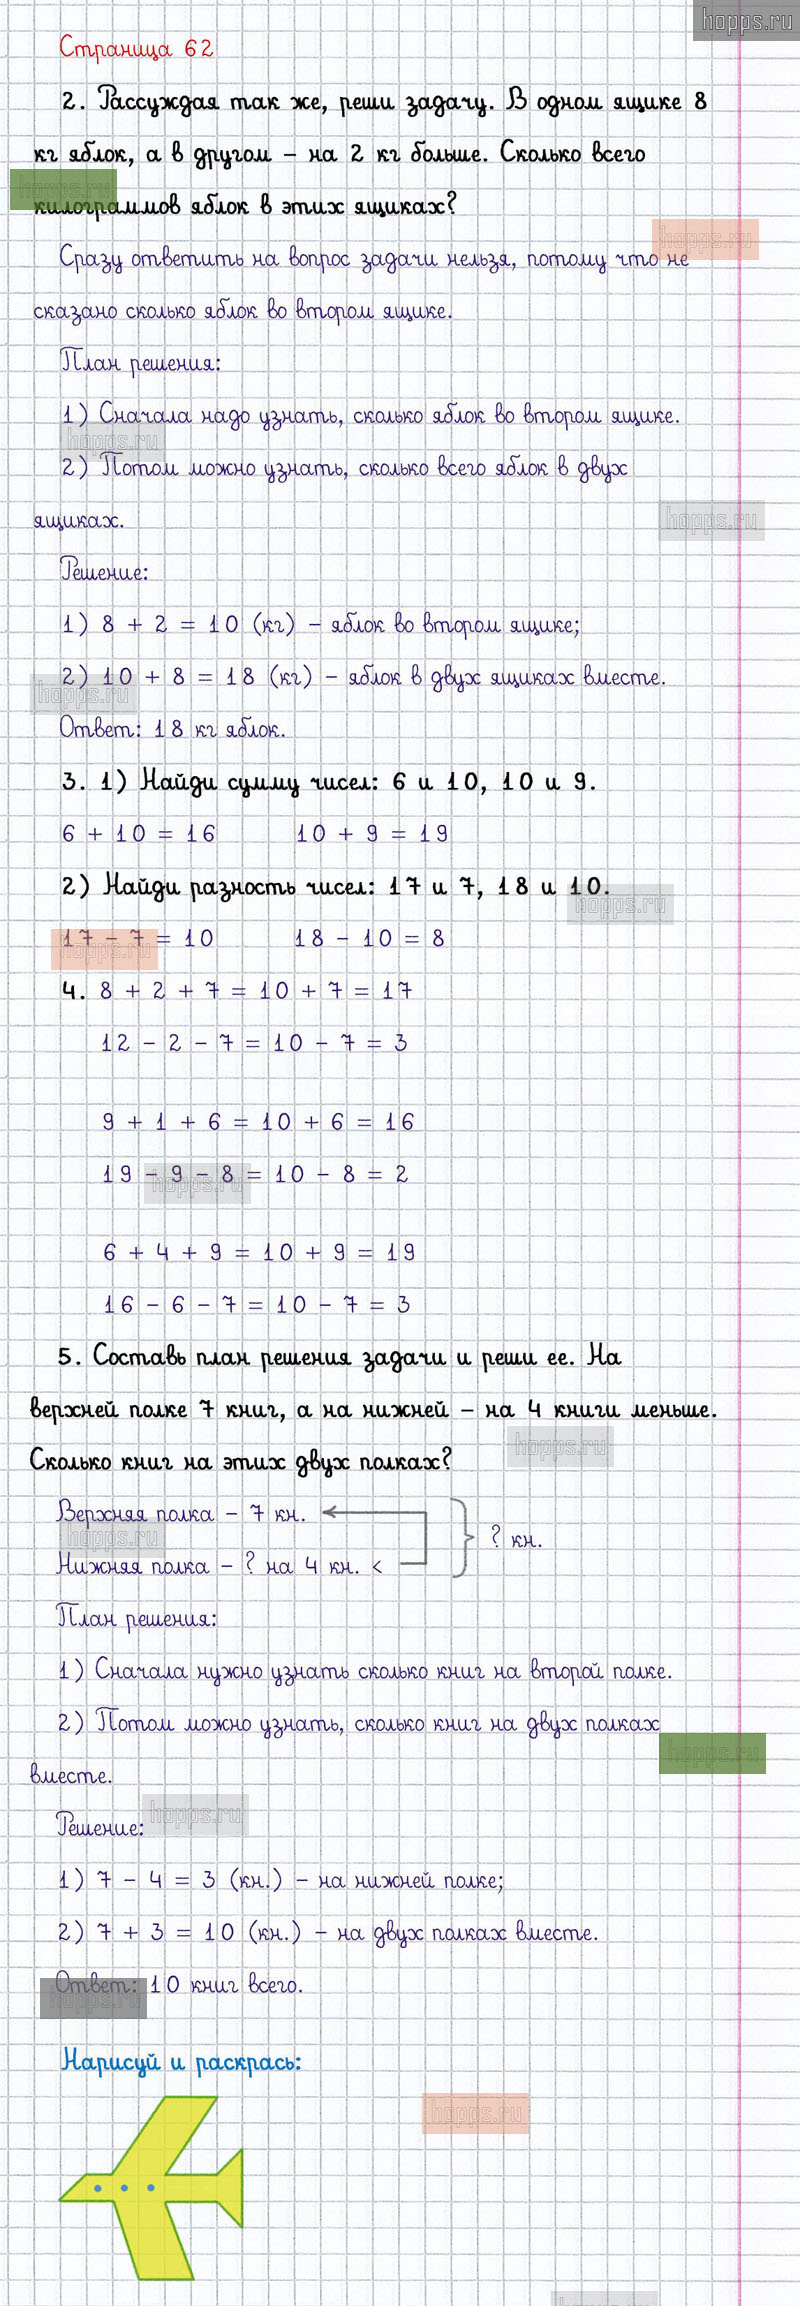 hopps.ru
Страница 62
2. Рассуждая так же, реши задачу. В одном ящике 8
кг яблок, а в другом – на 2 кг больше. Сколько всего
hopps.ru
килограммов яблок в этих ящиках?
hopps.ru
Сразу ответить на вопрос задачи нельзя, потому что не
сказано сколько яблок во втором ящике.
План решения:
1) Сначала надо узнать, сколько яблок во втором ящике.
hopps.ru
2) Потом можно узнать, сколько всего яблок в двух
ящиках.
hopps.ru
Решение:
1) 8 + 2 = 10 (кг) – яблок во втором ящике;
2) 10 + 8 = 18 (кг) – яблок в двух ящиках вместе.
hopps.ru
Ответ: 18 кг яблок.
3. 1) Найди сумму чисел: 6 и 10, 10 и 9.
6 + 10 = 16 10 + 9 = 19
2) Найди разность чисел: 17 и 7, 18 и 10.
hopps.ru
17 – 7 = 10 18 – 10 = 8
hopps.ru
4. 8 + 2 + 7 = 10 + 7 = 17
12 – 2 – 7 = 10 – 7 = 3
9 + 1 + 6 = 10 + 6 = 16
19 – 9 – 8 = 10 – 8 = 2
hopps.ru
6 + 4 + 9 = 10 + 9 = 19
16 – 6 – 7 = 10 – 7 = 3
5. Составь план решения задачи и реши ее. На
верхней полке 7 книг, а на нижней – на 4 книги меньше.
hopps.ru
Сколько книг на этих двух полках?
Верхняя полка – 7 кн.
hopps.ru
? кн.
Нижняя полка – ? на 4 кн. <
План решения:
1) Сначала нужно узнать сколько книг на второй полке.
2) Потом можно узнать, сколько книг на двух полках
hopps.ru
вместе.
hopps.ru
Решение:
1) 7 – 4 = 3 (кн.) – на нижней полке;
2) 7 + 3 = 10 (кн.) – на двух полках вместе.
Ответ: 10 книг всего.
hopps.ru
Нарисуй и раскрась:
hopps.ru
hopps.ru